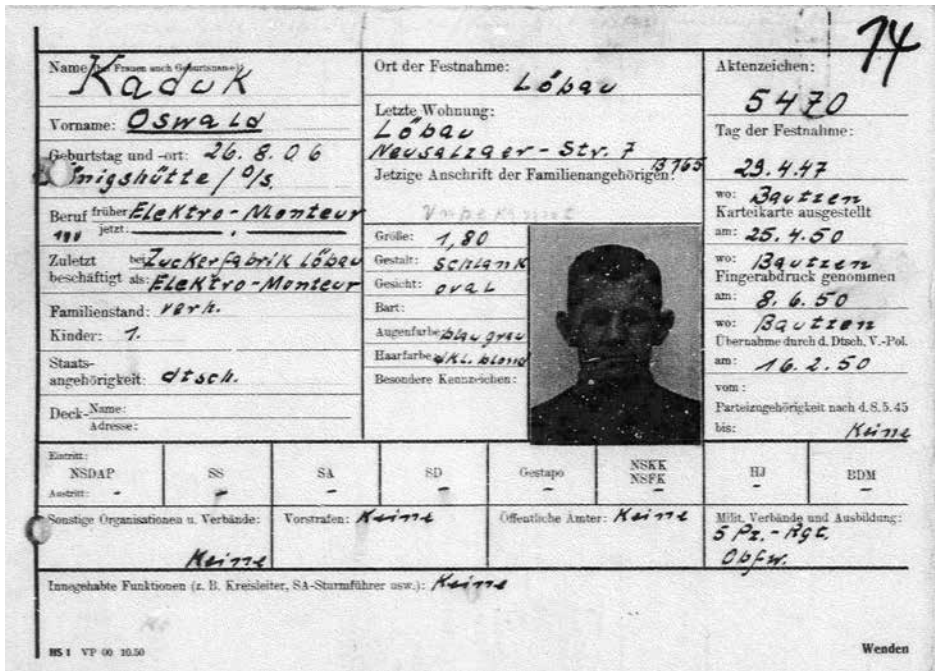 14
Name (bei Frauen auch Geburtsname):
Kaduk
Vorname: Oswald
Geburtstag und -ort: 26.8.06
Königshütte / O/S.
Beruf früher Elektro-Monteur
jetzt:
Zuletzt bei Zuckerfabrik Löbau
beschäftigt als: Elektro-Monteur
Familienstand: verh.
Kinder: 1.
Staats-
angehörigkeit: dtsch.
Deck- Name:
Adresse:
Ort der Festnahme:
Löbau
Letzte Wohnung:
Löbau
Neusalzaer-Str. 7
Jetzige Anschrift der Familienangehörigen:
Unbekannt
Größe: 1,80
Gestalt: schlank
Gesicht: oval
Bart:
Augenfarbe blaugrau
Haarfarbe dkl. blond
Besondere Kennzeichen:
Aktenzeichen:
5470
Tag der Festnahme:
29.4.47
wo: Bautzen
Karteikarte ausgestellt
am: 25.4.50
wo: Bautzen
Fingerabdruck genommen
am: 8.6.50
wo: Bautzen
Übernahme durch d. Dtsch. V.-Pol.
am: 16.2.50
vom:
Parteizugehörigkeit nach d. 8.5.45
bis: Keine
Eintritt:
NSDAP SS SA SD Gestapo NSKK HJ BDM
NSFK
Austritt: - - - - - - - -
Sonstige Organisationen u. Verbände:
Keine
Vorstrafen: Keine
Öffentliche Ämter: Keine
Milit. Verbände und Ausbildung:
5 Pz.-Rgt.
Obfw.
Innegehabte Funktionen (z. B. Kreisleiter, SA-Sturmführer usw.): Keine
HS 1 VP 00 10.50
Wenden